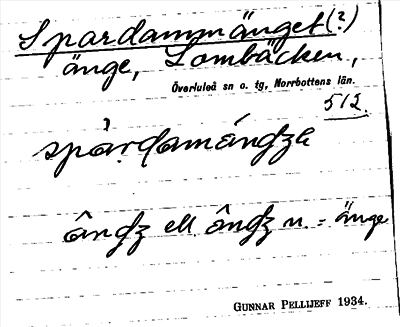 Spardammänget (?)
änge, Lombäcken,
Överluleå sn o. tg, Norrbottens län.
512.
spàrdamá́ndze
ândz ell. ândz n. = änge
GUNNAR PELLIJEFF 1934.